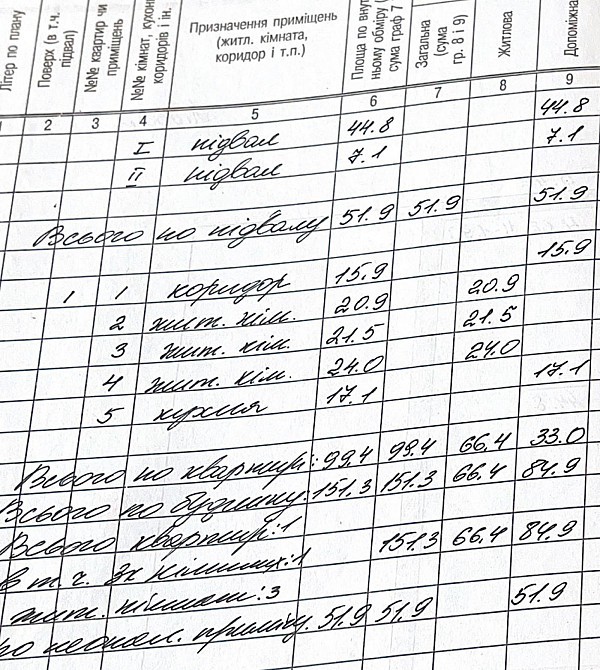 Літер по плану
Поверх (в т.ч. підвал)
№№ квартир чи приміщень
№№ кімнат, кухонь, коридорів і ін.
Призначення приміщень
(житл. кімната,
коридор і т.п.)
Площа по внут
ньому обміру
сума граф 7
Загальна
(сума
гр. 8 і 9)
Житлова
Допоміжна
1 2 3 4 5 6 7 8 9
I підвал 44.8 44.8
II підвал 7.1 7.1
Всього по підвалу 51.9 51.9 51.9
1 1 коридор 15.9 15.9
2 жит. кім. 20.9 20.9
3 жит. кім. 21.5 21.5
4 жит. кім. 24.0 24.0
5 кухня 17.1 17.1
Всього по квартирі: 99.4 99.4 66.4 33.0
Всього по будинку: 151.3 151.3 66.4 84.9
Всього квартир: 1 151.3 66.4 84.9
в т.ч. 3х кімнатних: 1
жит. кімнат: 3
51.9 51.9 51.9